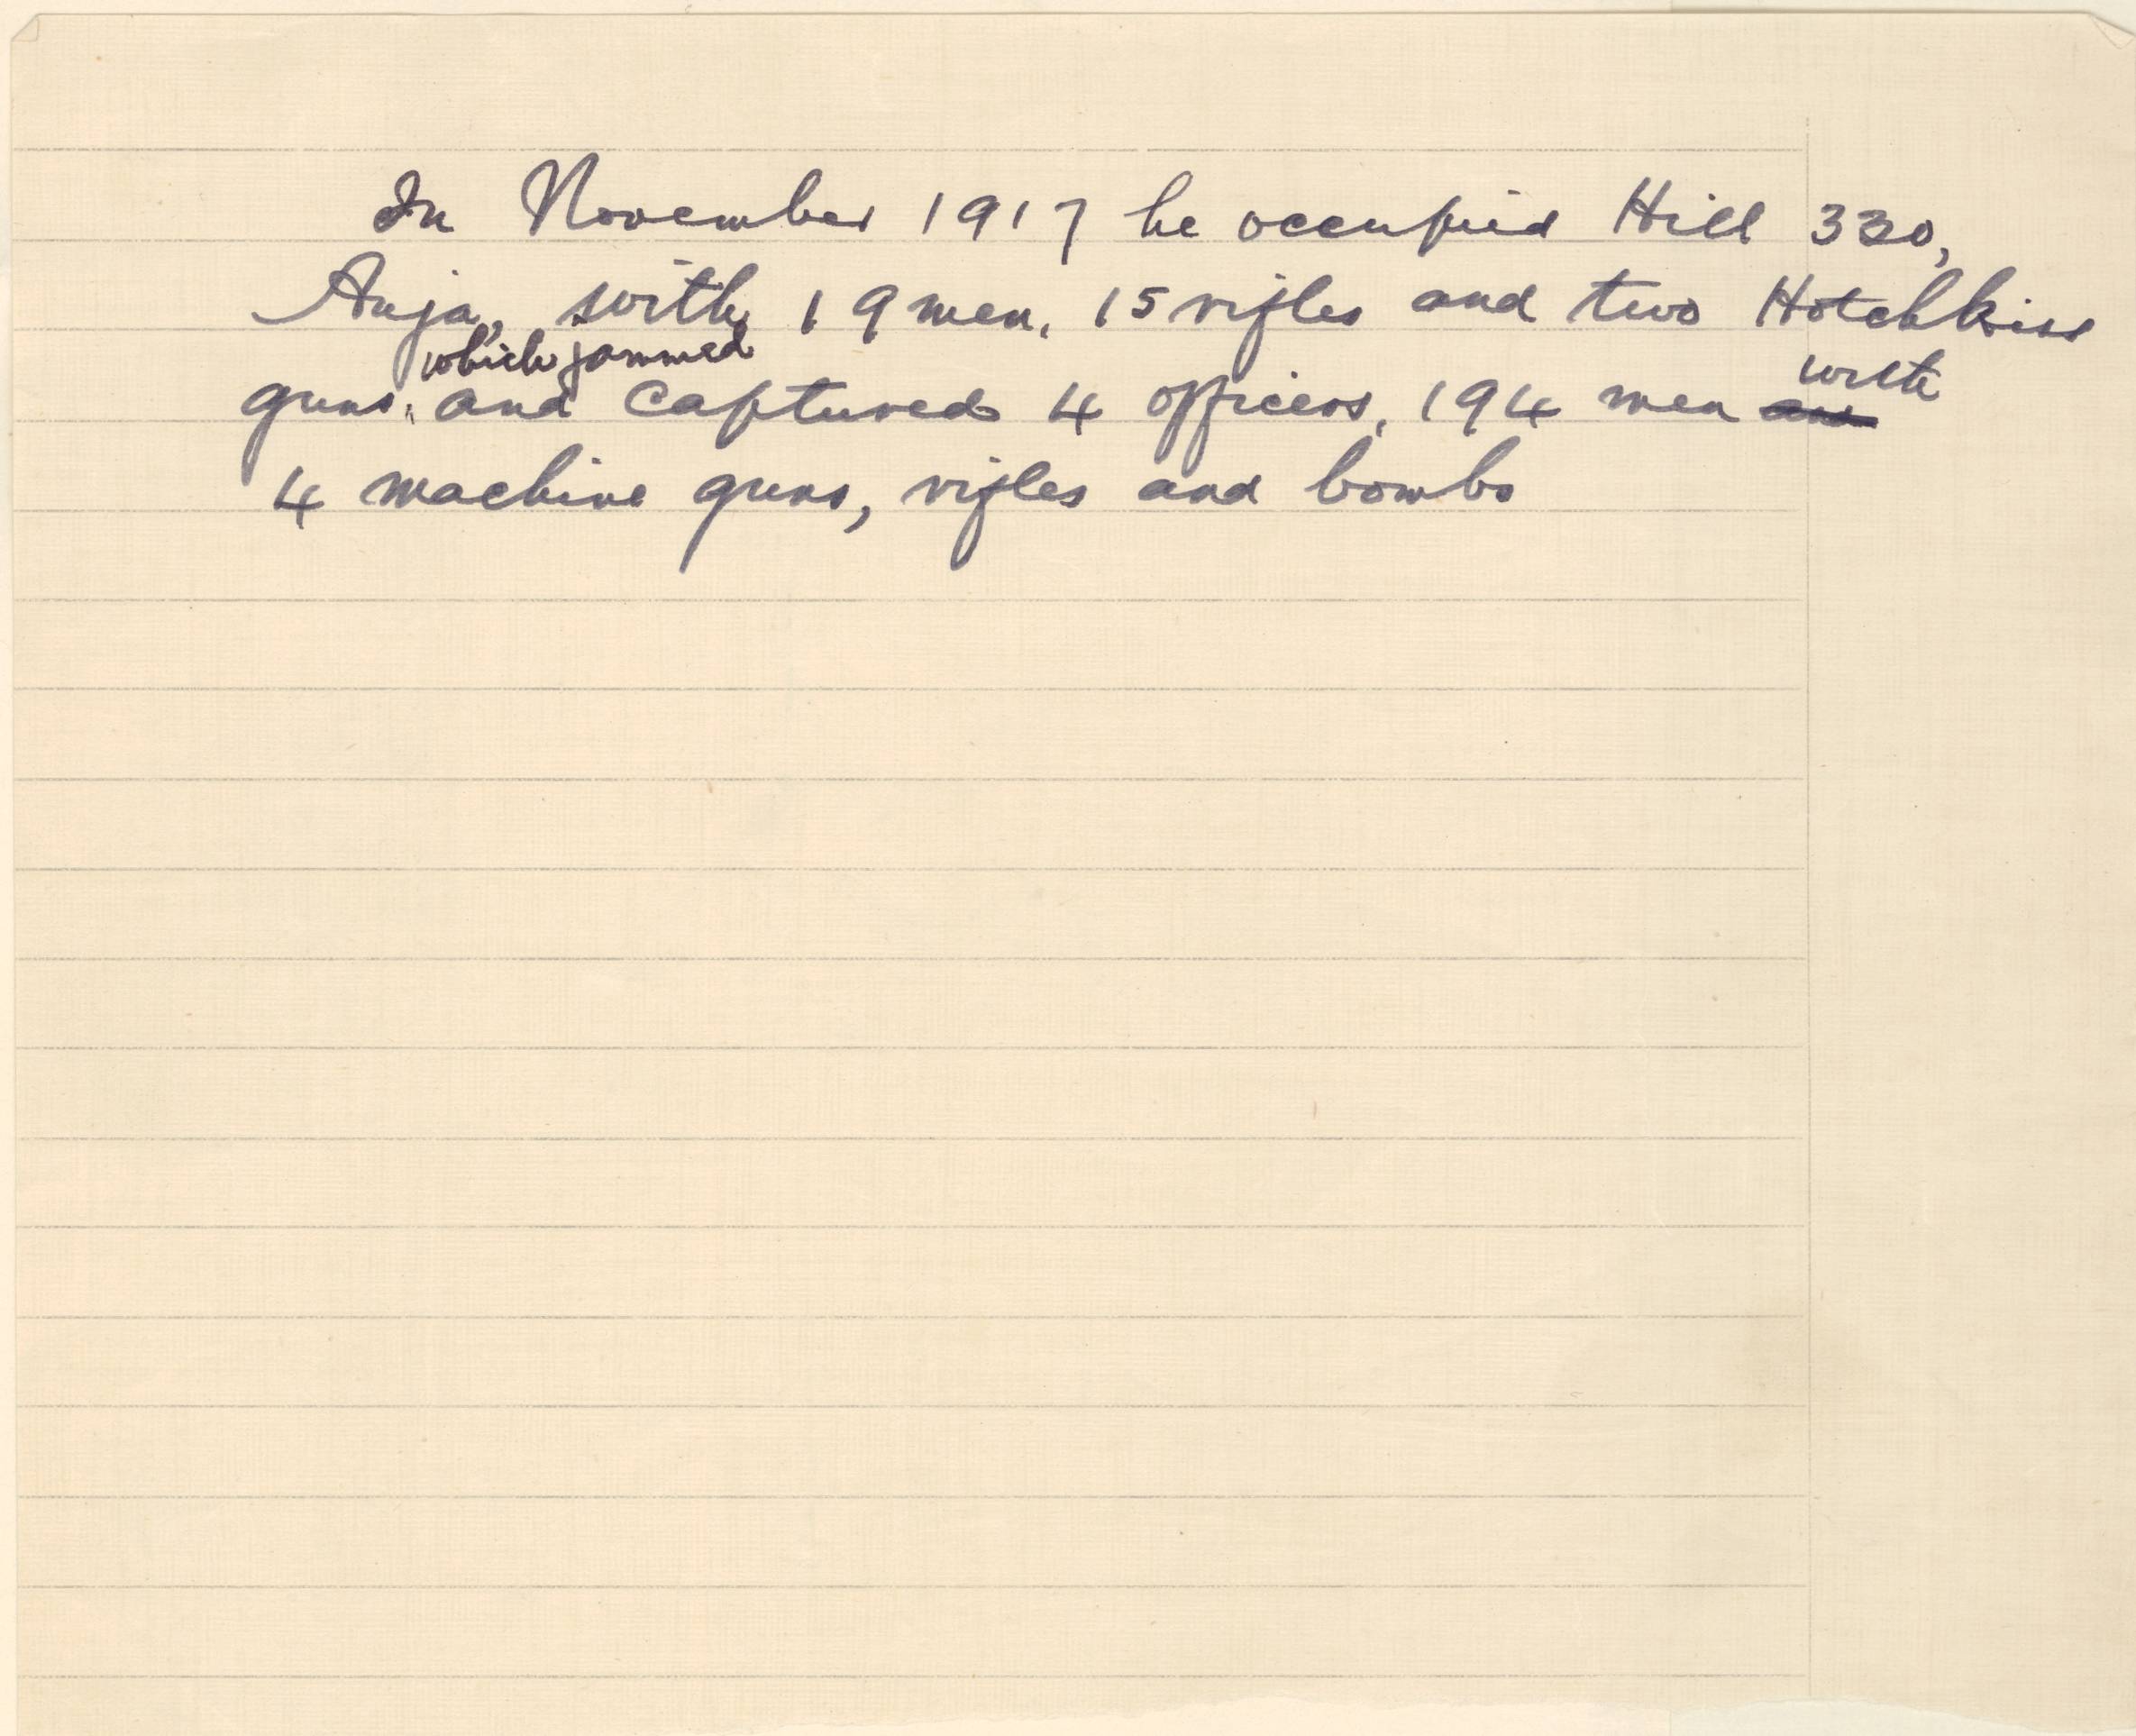 In November 1917 he occupied Hill 330,
Auja, with 19 men, 15 rifles and two Hotchkiss
which jammed
guns, and captured 4 officers, 194 men an with
4 machine guns, rifles and bombs